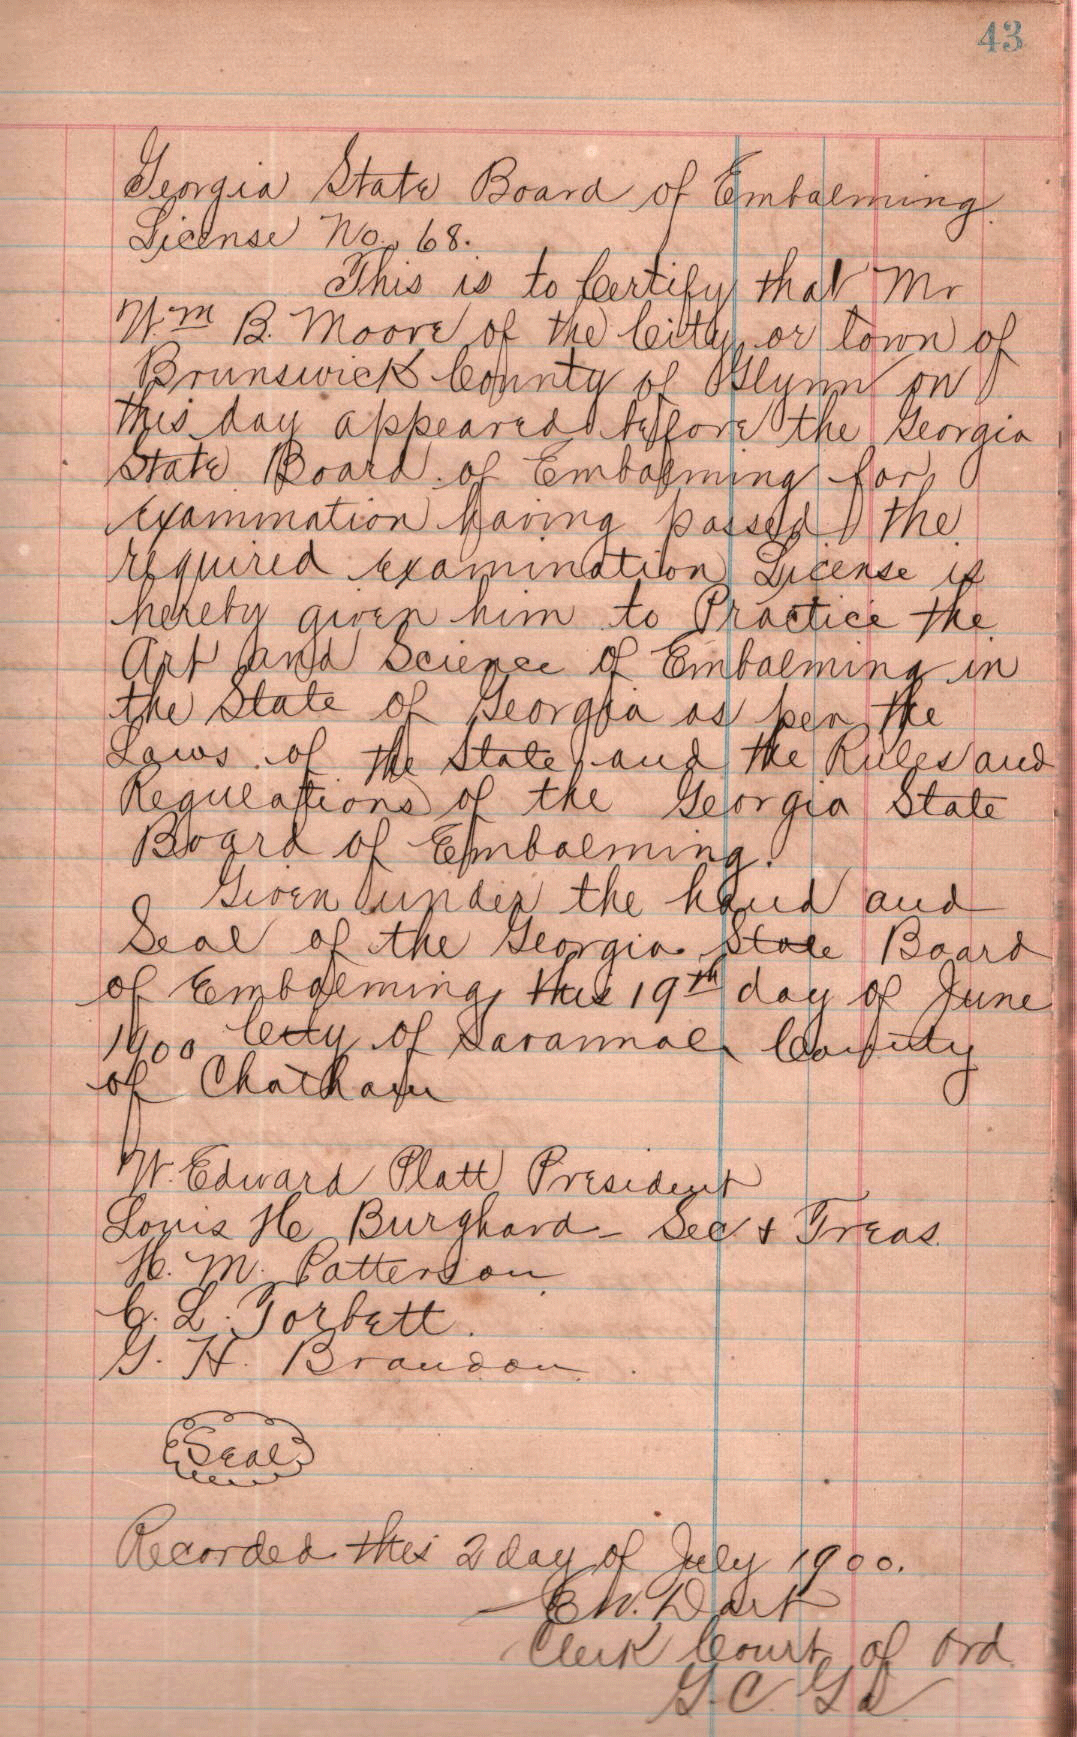 43
Georgia State Board of Embalming.
License No. 68.
This is to Certify that Mr
Wm B. Moore of the City or town of
Brunswick County of Glynn on
this day appeared before the Georgia
State Board of Embalming for
examination having passed the
required examination License is
hereby given him to Practice the
Art and Science of Embalming in
the State of Georgia as per the
Laws of the State and the Rules and
Regulations of the Georgia State
Board of Embalming.
Given under the hand and
Seal of the Georgia State Board
of Embalming, this 19th day of June
1900 City of Savannah County
of Chatham
W. Edward Platt President
Louis H Burghard - Sec & Treas.
H. M. Patterson
C. L. Torbett.
G. H. Brandon.
Seal
Recorded this 2 day of July 1900.
E W. Dart
Clerk Court of Ord.
G. C. Ga